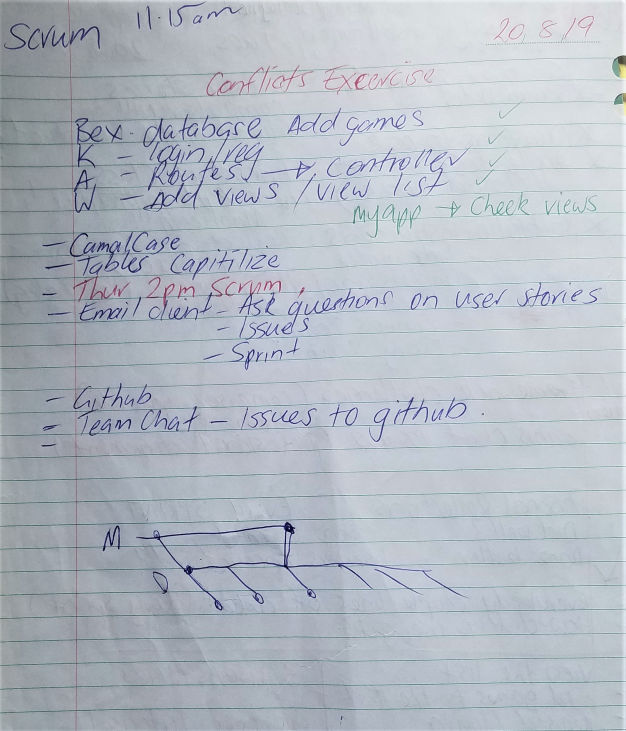 Scrum 11.15am 20/8/19
Conflicts Excercise
Bex - database Add games ✓
K - login/reg ✓
A - Routes → Controller ✓
W - Add views / view list ✓
myapp → Check views
- CamalCase
- Tables Capitilize
- Thur 2pm Scrum.
- Email client - Ask questions on user stories
- Issues
- Sprint
- Github
- Team Chat - Issues to github.
-
M
D